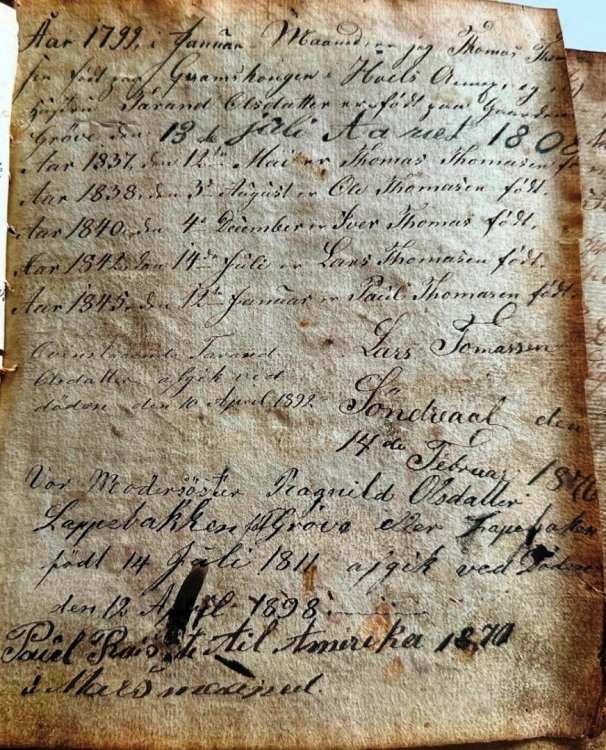 Aar 1799, i Januar Maaned, er jeg Thomas
født paa i Hoels Annex, og
Tarand Olsdatter er født paa Gaarden
Gröve den 13de juli Aaret 180
Aar 1837, den 12te Mai er Thomas Thomasen
Aar 1838, den 3de August er Ole Thomasen født.
Aar 1840, den 4de December er Iver Thomas født.
Aar 1842, den 14de Juli er Lars Thomasen født.
Aar 1845, den 12te Januar er Paül Thomasen født.
Lars Tomassen
Ovennævnte Tarand
Olsdatter afgik ved
döden den 10 April 1892
den
14de Februar 1876
Vor Modersöster Ragnild Olsdatter
Lappebakken Gröve eller
födt 14 Juli 1811 afgik ved Döden
den 12 April 1898.
Paül Raiste til Amerika 1870
i Mars maaned.